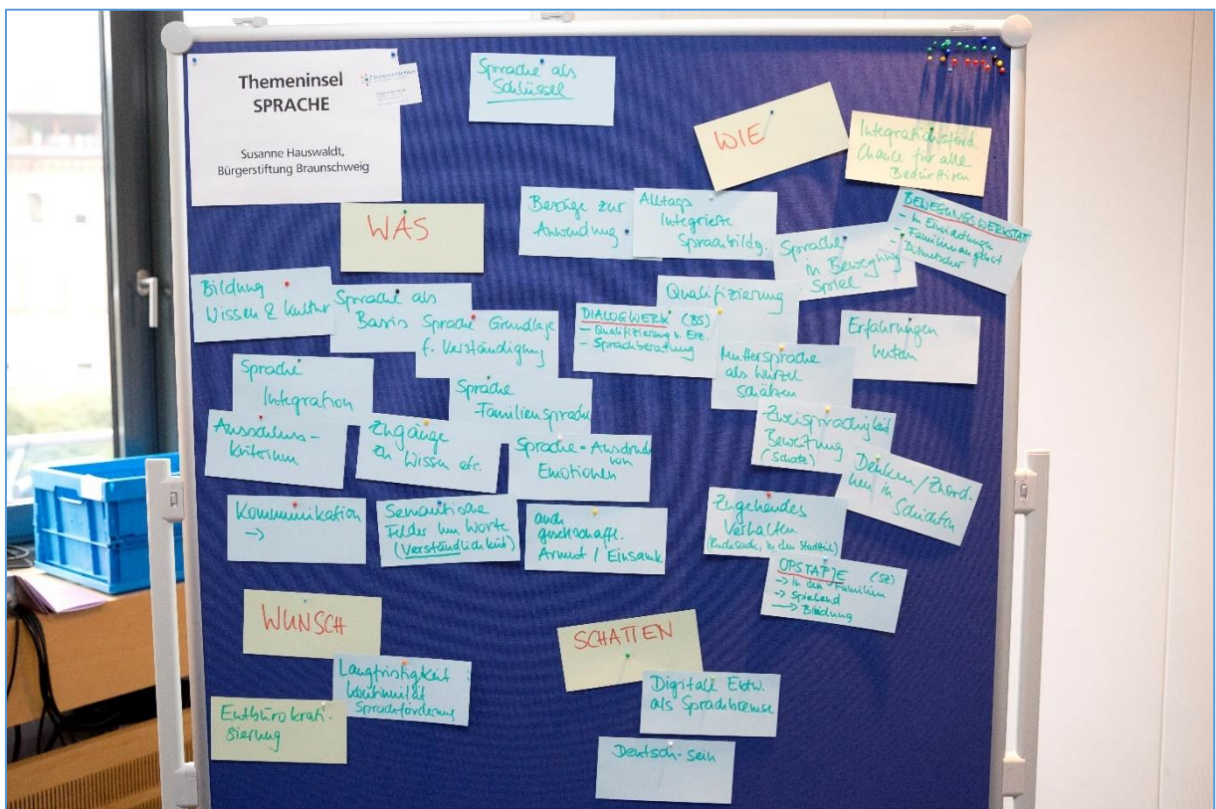 Themeninsel
SPRACHE
Susanne Hauswaldt,
Bürgerstiftung Braunschweig
Sprache als
Schlüssel
WIE
Integrationsförd.
Chance für alle
Bedürftigen
WAS
Bezüge zur
Anwendung
Alltags
Integrierte
Sprachbildg.
Sprache
in Bewegung
Spiel
BEWEGUNGSWERKSTATT
- in Einrichtungen
- Familienangebot
- Dolmetscher
Bildung
Wissen & Kultur
Sprache als
Basis
Sprache Grundlage
f. Verständigung
Qualifizierung
DIALOGWERK (BS)
- Qualifizierung v. Erz.
- Sprachberatung
Muttersprache
als Wurzel
schätzen
Erfahrungen
nutzen
Sprache
Integration
Sprache
Familiensprache
Ausschluss-
kriterium
Zugänge
zu Wissen etc.
Sprache = Ausdruck
von
Emotionen
Zweisprachigkeit
Bewertung
(Schatz)
Denken/Zuord-
nen in
Schichten
Kommunikation
->
Semantische
Felder um Worte
(Verständlichkeit)
auch
gesellschaftl.
Armut / Einsamk.
Zugehendes
Verhalten
OPSTAPJE (SZ)
-> in den Familien
-> Spielend
-> Bindung
WUNSCH
Langfristigkeit
Kontinuität
Sprachförderung
Entbürokrati-
sierung
SCHATTEN
Digitale Entw.
als Sprachbremse
Deutsch-sein